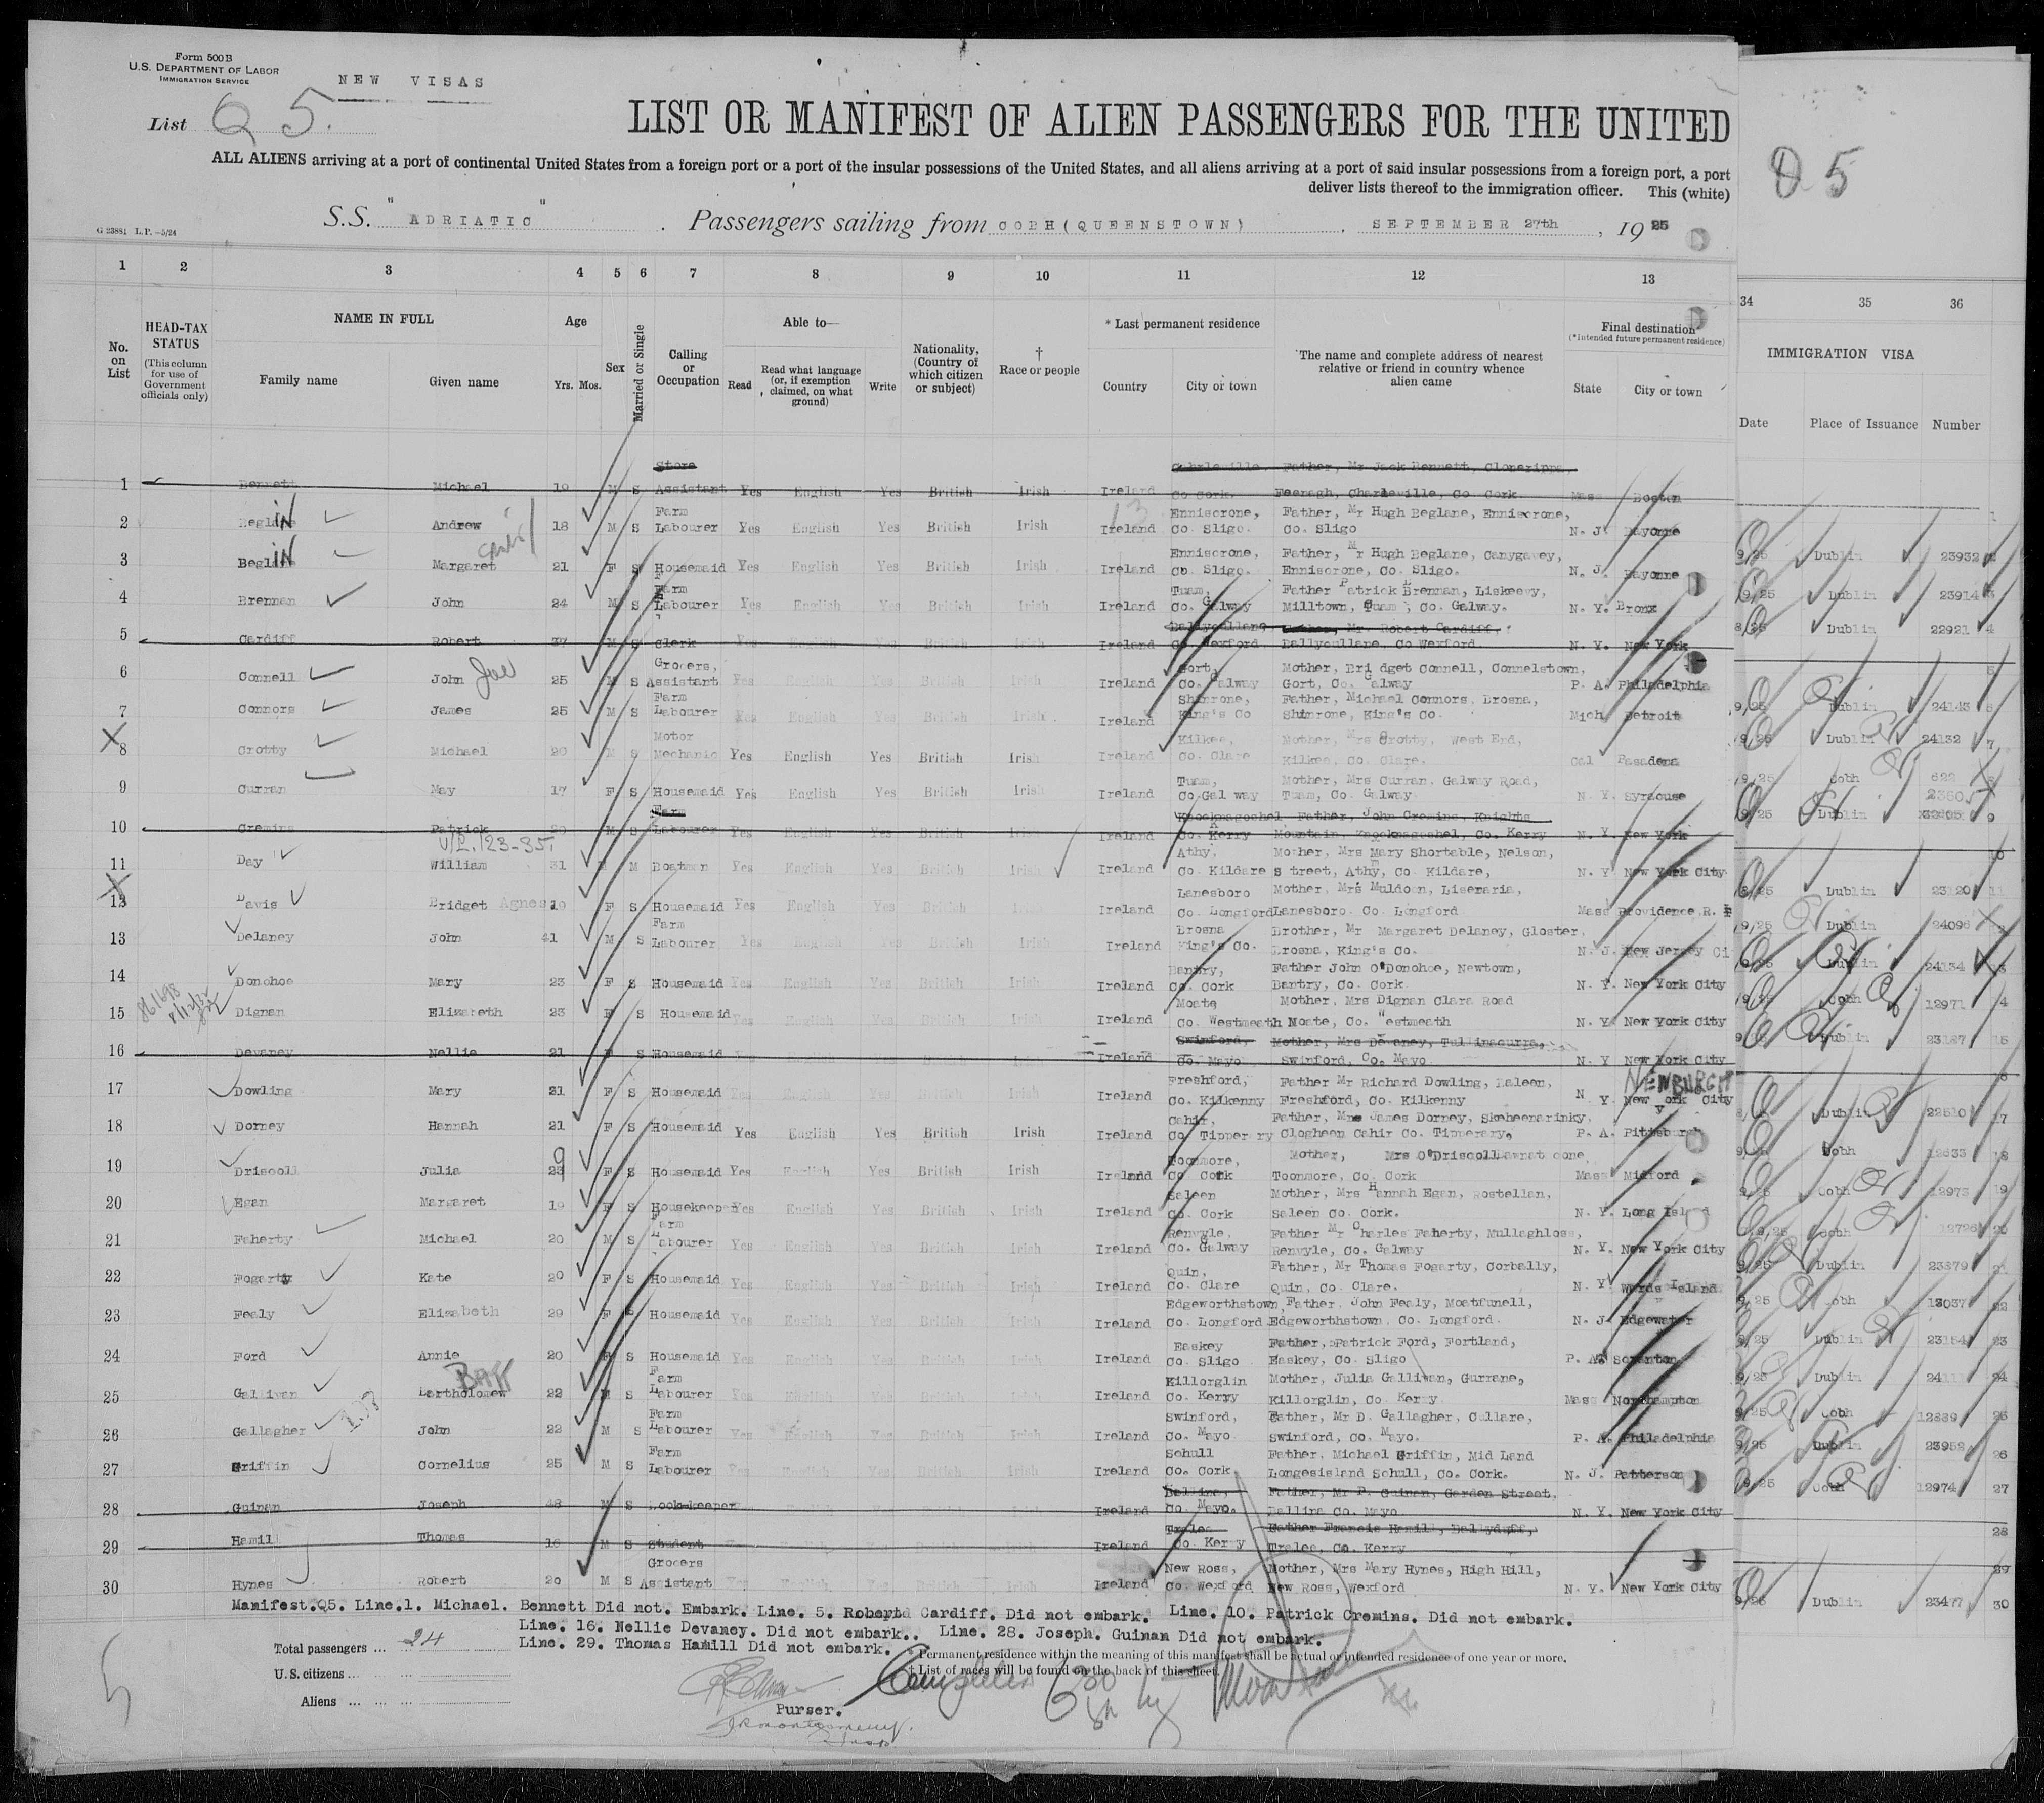 Form 500 B
U.S. DEPARTMENT OF LABOR
IMMIGRATION SERVICE
NEW VISAS
List Q 5.
LIST OR MANIFEST OF ALIEN PASSENGERS FOR THE UNITED
Q 5
ALL ALIENS arriving at a port of continental United States from a foreign port or a port of the insular possessions of the United States, and all aliens arriving at a port of said insular possessions from a foreign port, a port
deliver lists thereof to the immigration officer. This (white)
S.S. "ADRIATIC" . Passengers sailing from COBH (QUEENSTOWN) , SEPTEMBER 27th , 1925
G 23881 L.P.—5/24
1 2 3 4 5 6 7 8 9 10 11 12 13 34 35 36
No. on List
HEAD-TAX STATUS
(This column for use of Government officials only)
NAME IN FULL
Family name Given name
Age
Yrs. Mos.
Sex
Married or Single
Calling or Occupation
Able to—
Read
Read what language (or, if exemption claimed, on what ground)
Write
Nationality, (Country of which citizen or subject)
† Race or people
* Last permanent residence
Country City or town
The name and complete address of nearest relative or friend in country whence alien came
Final destination
(*Intended future permanent residence)
State City or town
IMMIGRATION VISA
Date Place of Issuance Number
1 Bennett Michael 19 M S Store Assistant Yes English Yes British Irish Ireland Co Cork. Father, Mr Jack Bennett, Feenagh, Charleville, Co Cork Mass Boston
2 Andrew 18 M S Farm Labourer Yes English Yes British Irish Ireland Enniscrone, Co. Sligo. Father, Mr Hugh Beglane, Enniscrone, Co. Sligo N. J. Bayonne 9/25 Dublin 23932
3 Margaret 21 F S Housemaid Yes English Yes British Irish Ireland Enniscrone, Co. Sligo. Father, Mr Hugh Beglane, Canygavey, Enniscrone, Co. Sligo. N. J. Bayonne 9/25 Dublin 23914 3
4 Brennan John 24 M S Farm Labourer Yes English Yes British Irish Ireland Tuam, Co. Galway Father Patrick Brennan, Liskeevy, Milltown, Tuam, Co. Galway. N. Y. Bronx 8/25 Dublin 22921 4
5 Cardiff Robert 27 M S Clerk Yes English Yes British Irish Ireland Ballycullane Co Wexford Mr. Robert Cardiff. Ballycullane, Co Wexford. N. Y. New York
6 Connell John Joe 25 M S Grocers, Assistant Yes English Yes British Irish Ireland Gort, Co. Galway Mother, Bridget Connell, Connelstown, Gort, Co. Galway P. A. Philadelphia 9/25 Dublin 24143
7 Connors James 25 M S Farm Labourer Yes English Yes British Irish Ireland Shinrone, King's Co Father, Michael Connors, Brosna, Shinrone, King's Co. Mich Detroit 9/25 Dublin 24132 7
X 8 Crotty Michael 26 M S Motor Mechanic Yes English Yes British Irish Ireland Kilkee, Co. Clare Mother, Mrs Crotty, West End, Kilkee, Co. Clare. Cal Pasadena 9/25 Cobh 622
9 Curran May 17 F S Housemaid Yes English Yes British Irish Ireland Tuam, Co.Gal way Mother, Mrs Curran, Galway Road, Tuam, Co. Galway N. Y. Syracuse 9/25 Dublin 9
10 Cremins Patrick M S Farm Labourer Yes English Yes British Irish Ireland Knocknagoshel Co. Kerry Father, John Cremins, Knights Mountain, Knocknagoshel, Co. Kerry N. Y. New York
11 Day William 31 M Boatman Yes English Yes British Irish Ireland Athy, Co. Kildare Mother, Mrs Mary Shortable, Nelson, Street, Athy, Co. Kildare, N. Y. New York City 8/25 Dublin 23120 11
X 12 Davis Bridget Agnes 19 F S Housemaid Yes English Yes British Irish Ireland Lanesboro Co. Longford Mother, Mrs Muldoon, Liseraria, Lanesboro. Co. Longford Mass Providence R. I 9/25 Dublin 24096
13 Delaney John 41 M S Farm Labourer Yes English Yes British Irish Ireland Brosna King's Co. Brother, Mr Margaret Delaney, Gloster, Brosna, King's Co. N. J. New Jersey Ci 9/25 Dublin 24134
14 Donohoe Mary 23 F S Housemaid Yes English Yes British Irish Ireland Bantry, Co. Cork Father John O'Donohoe, Newtown, Bantry, Co. Cork N. Y. New York City 9/25 Cobh 12971 4
15 Dignan Elizabeth 23 F S Housemaid Yes English Yes British Irish Ireland Moate Co. Westmeath Mother, Mrs Dignan Clara Road Moate, Co. Westmeath N. Y. New York City 9/25 Dublin 23187 15
16 Devaney Nellie 21 F S Housemaid Ireland Swinford, Co. Mayo Mother, Mrs Devaney, Tullinacurra, Swinford, Co. Mayo N. Y New York City
17 Dowling Mary 21 F S Housemaid Yes English Yes British Irish Ireland Freshford, Co. Kilkenny Father Mr Richard Dowling, Baleen, Freshford, Co. Kilkenny N. Y. New York City NEWBURGH Dublin 22510 17
18 Dorney Hannah 21 F S Housemaid Yes English Yes British Irish Ireland Cahir, Co. Tipper ry Father, Mrs James Dorney, Skeheenarinky, Clogheen Cahir Co. Tipperary, P. A. Pittsburgh 9/25 Cobh 18
19 Driscoll Julia F S Housemaid Yes English Yes British Irish Ireland Toonmore, Co Cork Mother, Mrs O'Driscoll Toonmore, Co. Cork Mass Milford 9/25 Cobh 12973 19
20 Egan Margaret 19 F S Housekeeper Yes English Yes British Irish Ireland Saleen Co. Cork Mother, Mrs Hannah Egan, Rostellan, Saleen Co. Cork. N. Y. Long Island 9/25 Cobh 12726 20
21 Faherty Michael 20 M S Farm Labourer Yes English Yes British Irish Ireland Renvyle, Co. Galway Father Mr Charles Faherty, Mullaghloss, Renvyle, Co. Galway N. Y. New York City 9/25 Dublin 23879 21
22 Fogarty Kate 20 F S Housemaid Yes English Yes British Irish Ireland Quin, Co. Clare Father, Mr Thomas Fogarty, Corbally, Quin, Co. Clare. N. Y Wards Island 9/25 Cobh 13037 22
23 Fealy Elizabeth 29 F S Housemaid Yes English Yes British Irish Ireland Edgeworthstown Co. Longford Father, John Fealy, Moatfunell, Edgeworthstown. Co. Longford. N. J. Edgewater 9/25 Dublin 23154 23
24 Ford Annie 20 F S Housemaid Yes English Yes British Irish Ireland Easkey Co. Sligo Father, Patrick Ford, Fortland, Easkey, Co. Sligo P. A. Scranton 9/25 Dublin 24
25 Gallivan Bartholomew BATT 22 M S Farm Labourer Yes English Yes British Irish Ireland Killorglin Co. Kerry Mother, Julia Gallivan, Gurrane, Killorglin, Co. Kerry Mass Northampton 9/25 Cobh 12889 25
26 Gallagher John 22 M S Farm Labourer Yes English Yes British Irish Ireland Swinford, Co. Mayo Father, Mr D. Gallagher, Cullare, Swinford, Co. Mayo. P. A. Philadelphia 9/25 Dublin 23952 26
27 Griffin Cornelius 25 M S Farm Labourer Yes English Yes British Irish Ireland Schull Co. Cork Father, Michael Griffin, Mid Land Longesisland Schull, Co. Cork. N. J. Patterson 9/25 Cobh 12974 27
28 Guinan Joseph M S Book-keeper Ireland Ballina, Co. Mayo. Father, Mr P. Guinan, Garden Street, Ballina Co. Mayo N. Y. New York City 28
29 Hamill Thomas 18 M S Student Ireland Tralee Co Kerry Father Francis Hamill, Ballyduff, Tralee, Co. Kerry 29
30 Hynes Robert 20 M S Grocers Assistant Yes English Yes British Irish Ireland New Ross, Co. Wexford Mother, Mrs Mary Hynes, High Hill, New Ross, Wexford N. Y. New York City 9/25 Dublin 23477 30
Manifest.Q5. Line.1. Michael. Bennett Did not. Embark. Line. 5. Robert Cardiff. Did not embark. Line. 10. Patrick Cremins. Did not embark.
Line. 16. Nellie Devaney. Did not embark.. Line. 28. Joseph. Guinan Did not embark.
Line. 29. Thomas Hamill Did not embark.
Total passengers ... 24
U.S. citizens ...
Aliens ...
* Permanent residence within the meaning of this manifest shall be actual or intended residence of one year or more.
† List of races will be found on the back of this sheet.
Purser.